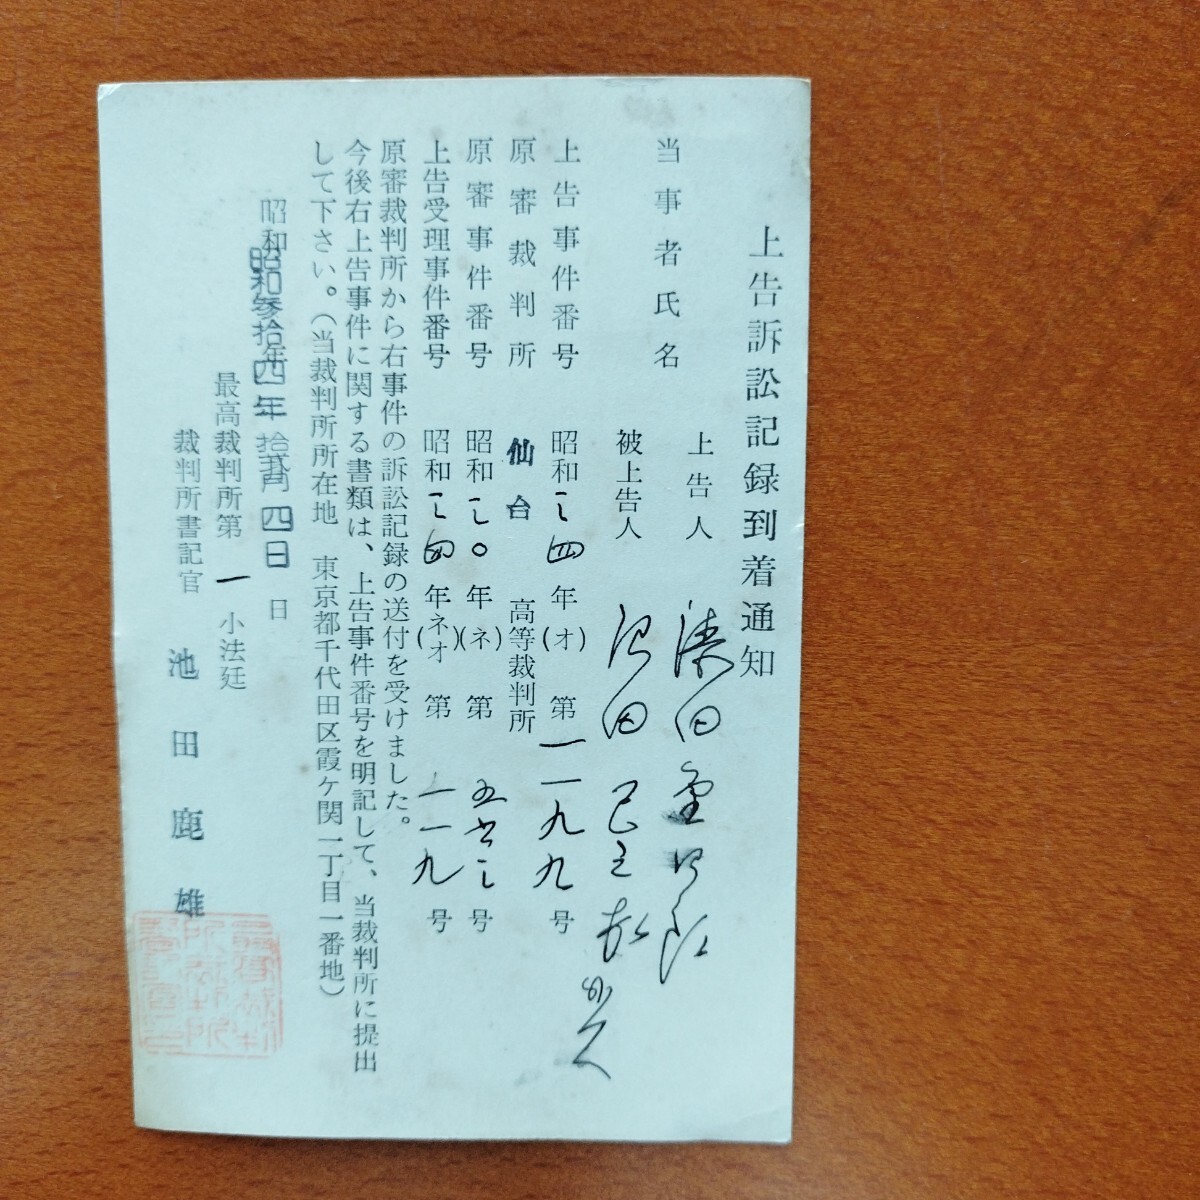 上告訴訟記録到着通知
当事者氏名
上告人
被上告人
上告事件番号 昭和三四年(オ)第一一九九号
原審裁判所 仙台高等裁判所
原審事件番号 昭和三〇年(ネ)第五七三号
上告受理事件番号 昭和三四年(ネオ)第一一九号
原審裁判所から右事件の訴訟記録の送付を受けました。
今後右上告事件に関する書類は、上告事件番号を明記して、当裁判所に提出
して下さい。(当裁判所所在地 東京都千代田区霞ケ関一丁目一番地)
昭和 年 日
昭和参拾四年拾弐月四日
最高裁判所第一小法廷
裁判所書記官 池田鹿雄